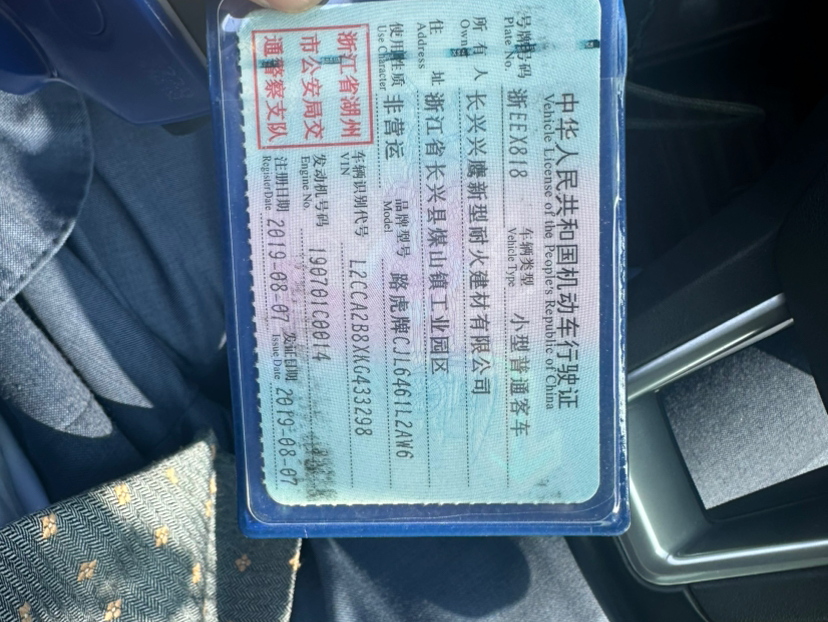 中华人民共和国机动车行驶证
Vehicle License of the People's Republic of China
号牌号码 浙EEX818 车辆类型 小型普通客车
Plate No. Vehicle Type
所有人 长兴兴鹰新型耐火建材有限公司
Owner
住址 浙江省长兴县煤山镇工业园区
Address
使用性质 非营运 品牌型号 路虎牌CJL6461L2AW6
Use Character Model
浙江省湖州
市公安局交
通警察支队
车辆识别代号 L2CCA2B8XKG433298
VIN
发动机号码 190701C0014
Engine No.
注册日期 2019-08-07 发证日期 2019-08-07
Register Date Issue Date